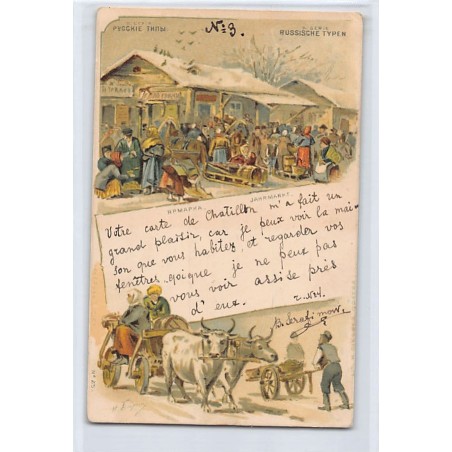 № 3.
РУССКІЕ ТИПЫ.
RUSSISCHE TYPEN
ЯРМАРКА.
JAHRMARKT.
Votre carte de Chatillon m'a fait un
grand plaisir, car je peux voir la mai-
son que vous habitez, et regarder vos
fenêtres, qoique je ne peux pas
vous voir assise près
d'eux.
B. Serafimow.